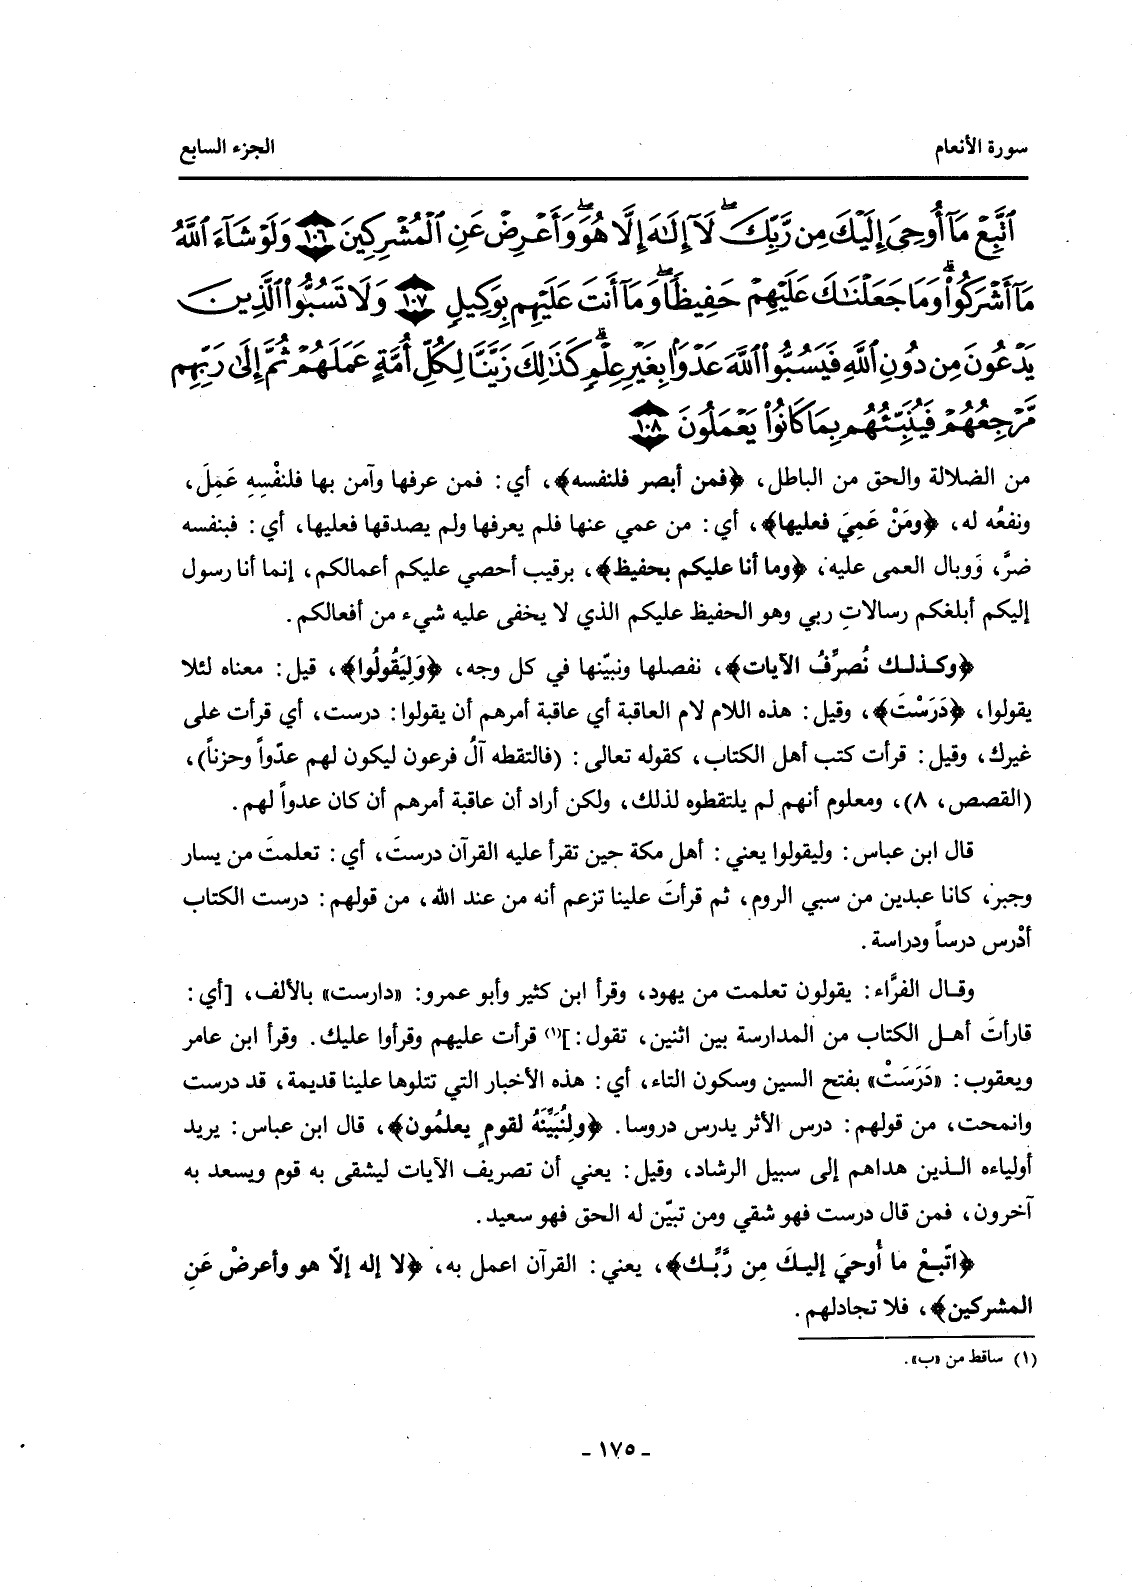 سورة الأنعام
الجزء السابع
ٱتَّبِعۡ مَآ أُوحِيَ إِلَيۡكَ مِن رَّبِّكَۖ لَآ إِلَٰهَ إِلَّا هُوَۖ وَأَعۡرِضۡ عَنِ ٱلۡمُشۡرِكِينَ ١٠٦ وَلَوۡ شَآءَ ٱللَّهُ
مَآ أَشۡرَكُواْۗ وَمَا جَعَلۡنَٰكَ عَلَيۡهِمۡ حَفِيظٗاۖ وَمَآ أَنتَ عَلَيۡهِم بِوَكِيلٖ ١٠٧ وَلَا تَسُبُّواْ ٱلَّذِينَ
يَدۡعُونَ مِن دُونِ ٱللَّهِ فَيَسُبُّواْ ٱللَّهَ عَدۡوَۢا بِغَيۡرِ عِلۡمٖۗ كَذَٰلِكَ زَيَّنَّا لِكُلِّ أُمَّةٍ عَمَلَهُمۡ ثُمَّ إِلَىٰ رَبِّهِم
مَّرۡجِعُهُمۡ فَيُنَبِّئُهُم بِمَا كَانُواْ يَعۡمَلُونَ ١٠٨
من الضلالة والحق من الباطل، ﴿فمن أبصر فلنفسه﴾، أي: فمن عرفها وآمن بها فلنفْسِهِ عَمِلَ،
ونفعُه له، ﴿ومَنْ عَمِيَ فعليها﴾، أي: من عمي عنها فلم يعرفها ولم يصدقها فعليها، أي: فبنفسه
ضرَّ، وَوبال العمى عليه، ﴿وما أنا عليكم بحفيظ﴾، برقيب أحصي عليكم أعمالكم، إنما أنا رسول
إليكم أبلغكم رسالاتِ ربي وهو الحفيظ عليكم الذي لا يخفى عليه شيء من أفعالكم.
﴿وكذلك نُصرِّفُ الآيات﴾، نفصلها ونبيّنها في كل وجه، ﴿وَلِيَقُولُوا﴾، قيل: معناه لئلا
يقولوا، ﴿دَرَسْتَ﴾، وقيل: هذه اللام لام العاقبة أي عاقبة أمرهم أن يقولوا: درست، أي قرأت على
غيرك، وقيل: قرأت كتب أهل الكتاب، كقوله تعالى: (فالتقطه آلُ فرعون ليكون لهم عدّواً وحزناً)،
(القصص، ٨)، ومعلوم أنهم لم يلتقطوه لذلك، ولكن أراد أن عاقبة أمرهم أن كان عدواً لهم.
قال ابن عباس: وليقولوا يعني: أهل مكة حين تقرأ عليه القرآن درستَ، أي: تعلمتَ من يسار
وجبر، كانا عبدين من سبي الروم، ثم قرأتَ علينا تزعم أنه من عند الله، من قولهم: درست الكتاب
أدْرس درساً ودراسة.
وقال الفرَّاء: يقولون تعلمت من يهود، وقرأ ابن كثير وأبو عمرو: «دارست» بالألف، [أي:
قارأتَ أهل الكتاب من المدارسة بين اثنين، تقول:](١) قرأت عليهم وقرأوا عليك. وقرأ ابن عامر
ويعقوب: «دَرَسَتْ» بفتح السين وسكون التاء، أي: هذه الأخبار التي تتلوها علينا قديمة، قد درست
وانمحت، من قولهم: درس الأثر يدرس دروسا. ﴿ولِنُبيِّنَهُ لقومٍ يعلمُون﴾، قال ابن عباس: يريد
أولياءه الذين هداهم إلى سبيل الرشاد، وقيل: يعني أن تصريف الآيات ليشقى به قوم ويسعد به
آخرون، فمن قال درست فهو شقي ومن تبيّن له الحق فهو سعيد.
﴿اتّبعْ ما أُوحيَ إليكَ مِن رَّبِّك﴾، يعني: القرآن اعمل به، ﴿لا إله إلاّ هو وأعرضْ عَنِ
المشركين﴾، فلا تجادلهم.
(١) ساقط من «ب».
ـ ١٧٥ ـ